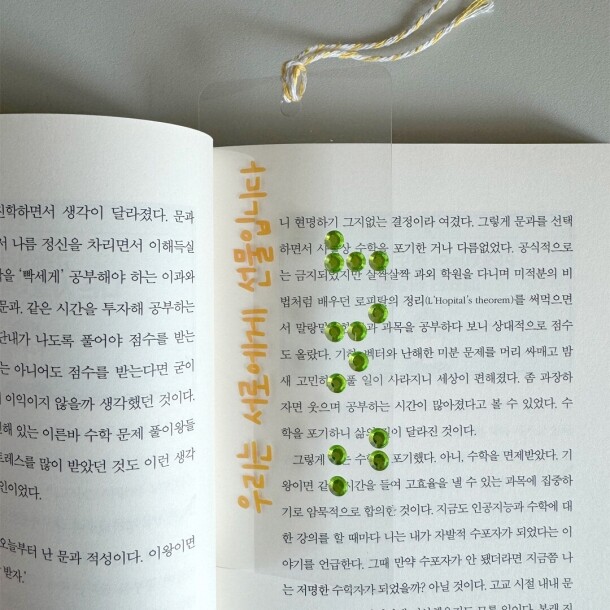 우리는 서로에게 선물입니다
진학하면서 생각이 달라졌다. 문과
서 나름 정신을 차리면서 이해득실
을 '빡세게' 공부해야 하는 이과와
문과. 같은 시간을 투자해 공부하는
단내가 나도록 풀어야 점수를 받는
는 아니어도 점수를 받는다면 굳이
이익이지 않을까 생각했던 것이다.
해 있는 이른바 수학 문제 풀이왕들
트레스를 많이 받았던 것도 이런 생각
인이었다.
오늘부터 난 문과 적성이다. 이왕이면
받자.'
니 현명하기 그지없는 결정이라 여겼다. 그렇게 문과를 선택
하면서 수학을 포기한 거나 다름없었다. 공식적으로
는 금지되었지만 살짝살짝 과외 학원을 다니며 미적분의 비
법처럼 배우던 로피탈의 정리(L'Hopital's theorem)를 써먹으면
서 과목을 공부하다 보니 상대적으로 점수
도 올랐다. 벡터와 난해한 미분 문제를 머리 싸매고 밤
새 풀 일이 사라지니 세상이 편해졌다. 좀 과장하
자면 웃으며 공부하는 시간이 많아졌다고 볼 수 있었다. 수
학을 포기하니 삶의 달라진 것이다.
그렇게 포기했다. 아니, 수학을 면제받았다. 기
왕이면 같은 시간을 들여 고효율을 낼 수 있는 과목에 집중하
기로 암묵적으로 합의한 것이다. 지금도 인공지능과 수학에 대
한 강의를 할 때마다 나는 내가 자발적 수포자가 되었다는 이
야기를 언급한다. 그때 만약 수포자가 안 됐더라면 지금쯤 나
는 저명한 수학자가 되었을까? 아닐 것이다. 고교 시절 내내 문